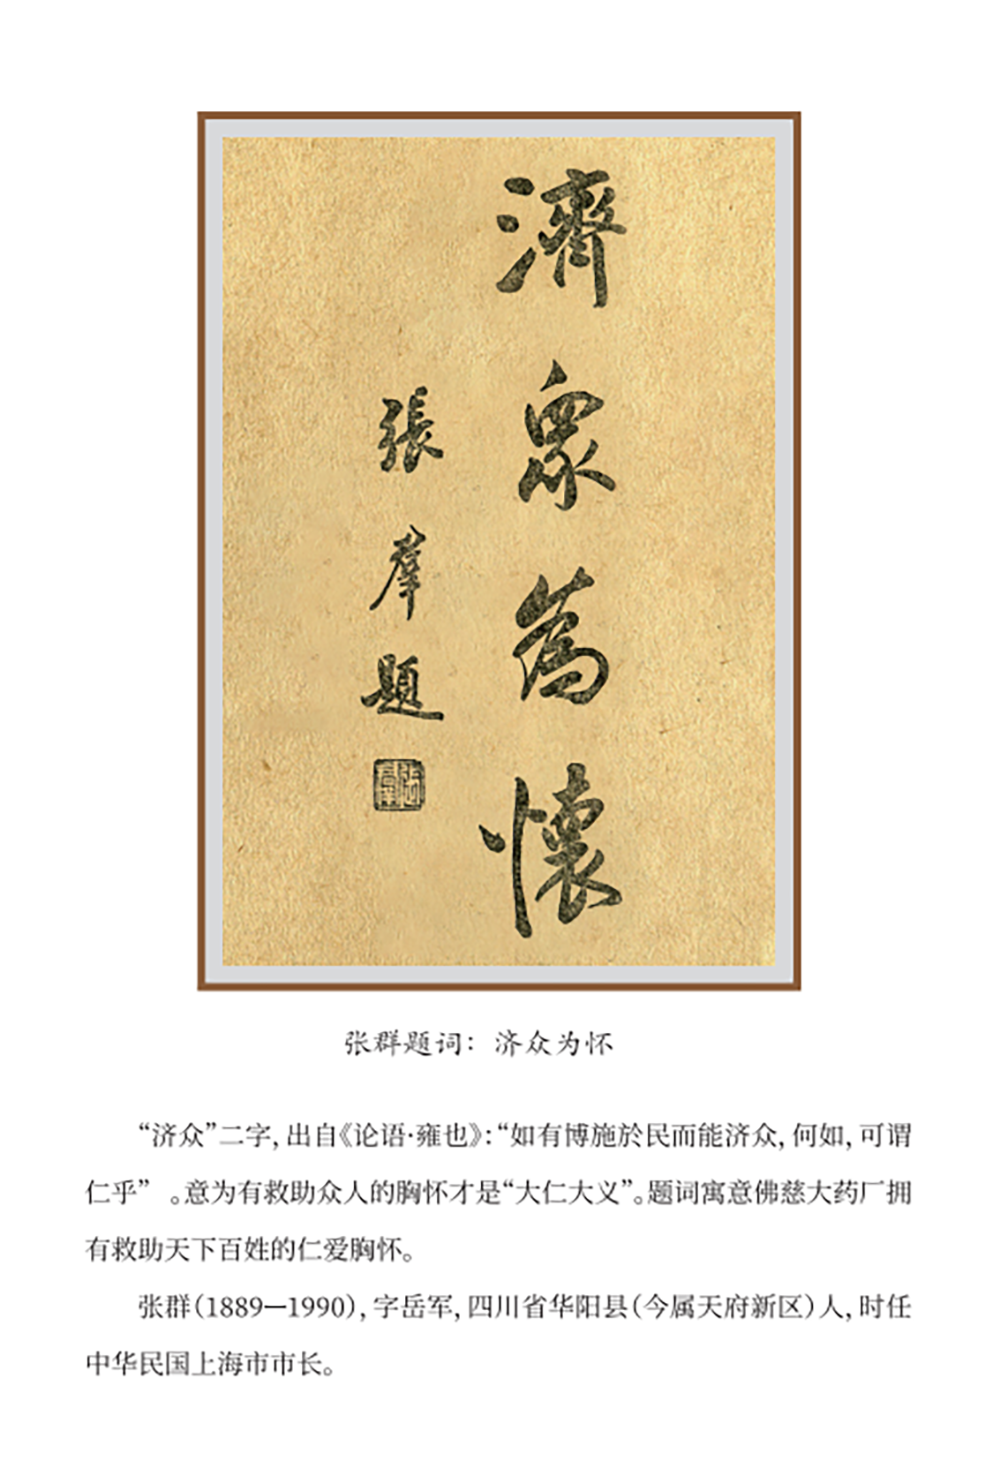 濟眾為懷
張羣題
张群题词：济众为怀
“济众”二字，出自《论语·雍也》：“如有博施於民而能济众，何如，可谓
仁乎”　。意为有救助众人的胸怀才是“大仁大义”。题词寓意佛慈大药厂拥
有救助天下百姓的仁爱胸怀。
张群（1889—1990），字岳军，四川省华阳县（今属天府新区）人，时任
中华民国上海市市长。